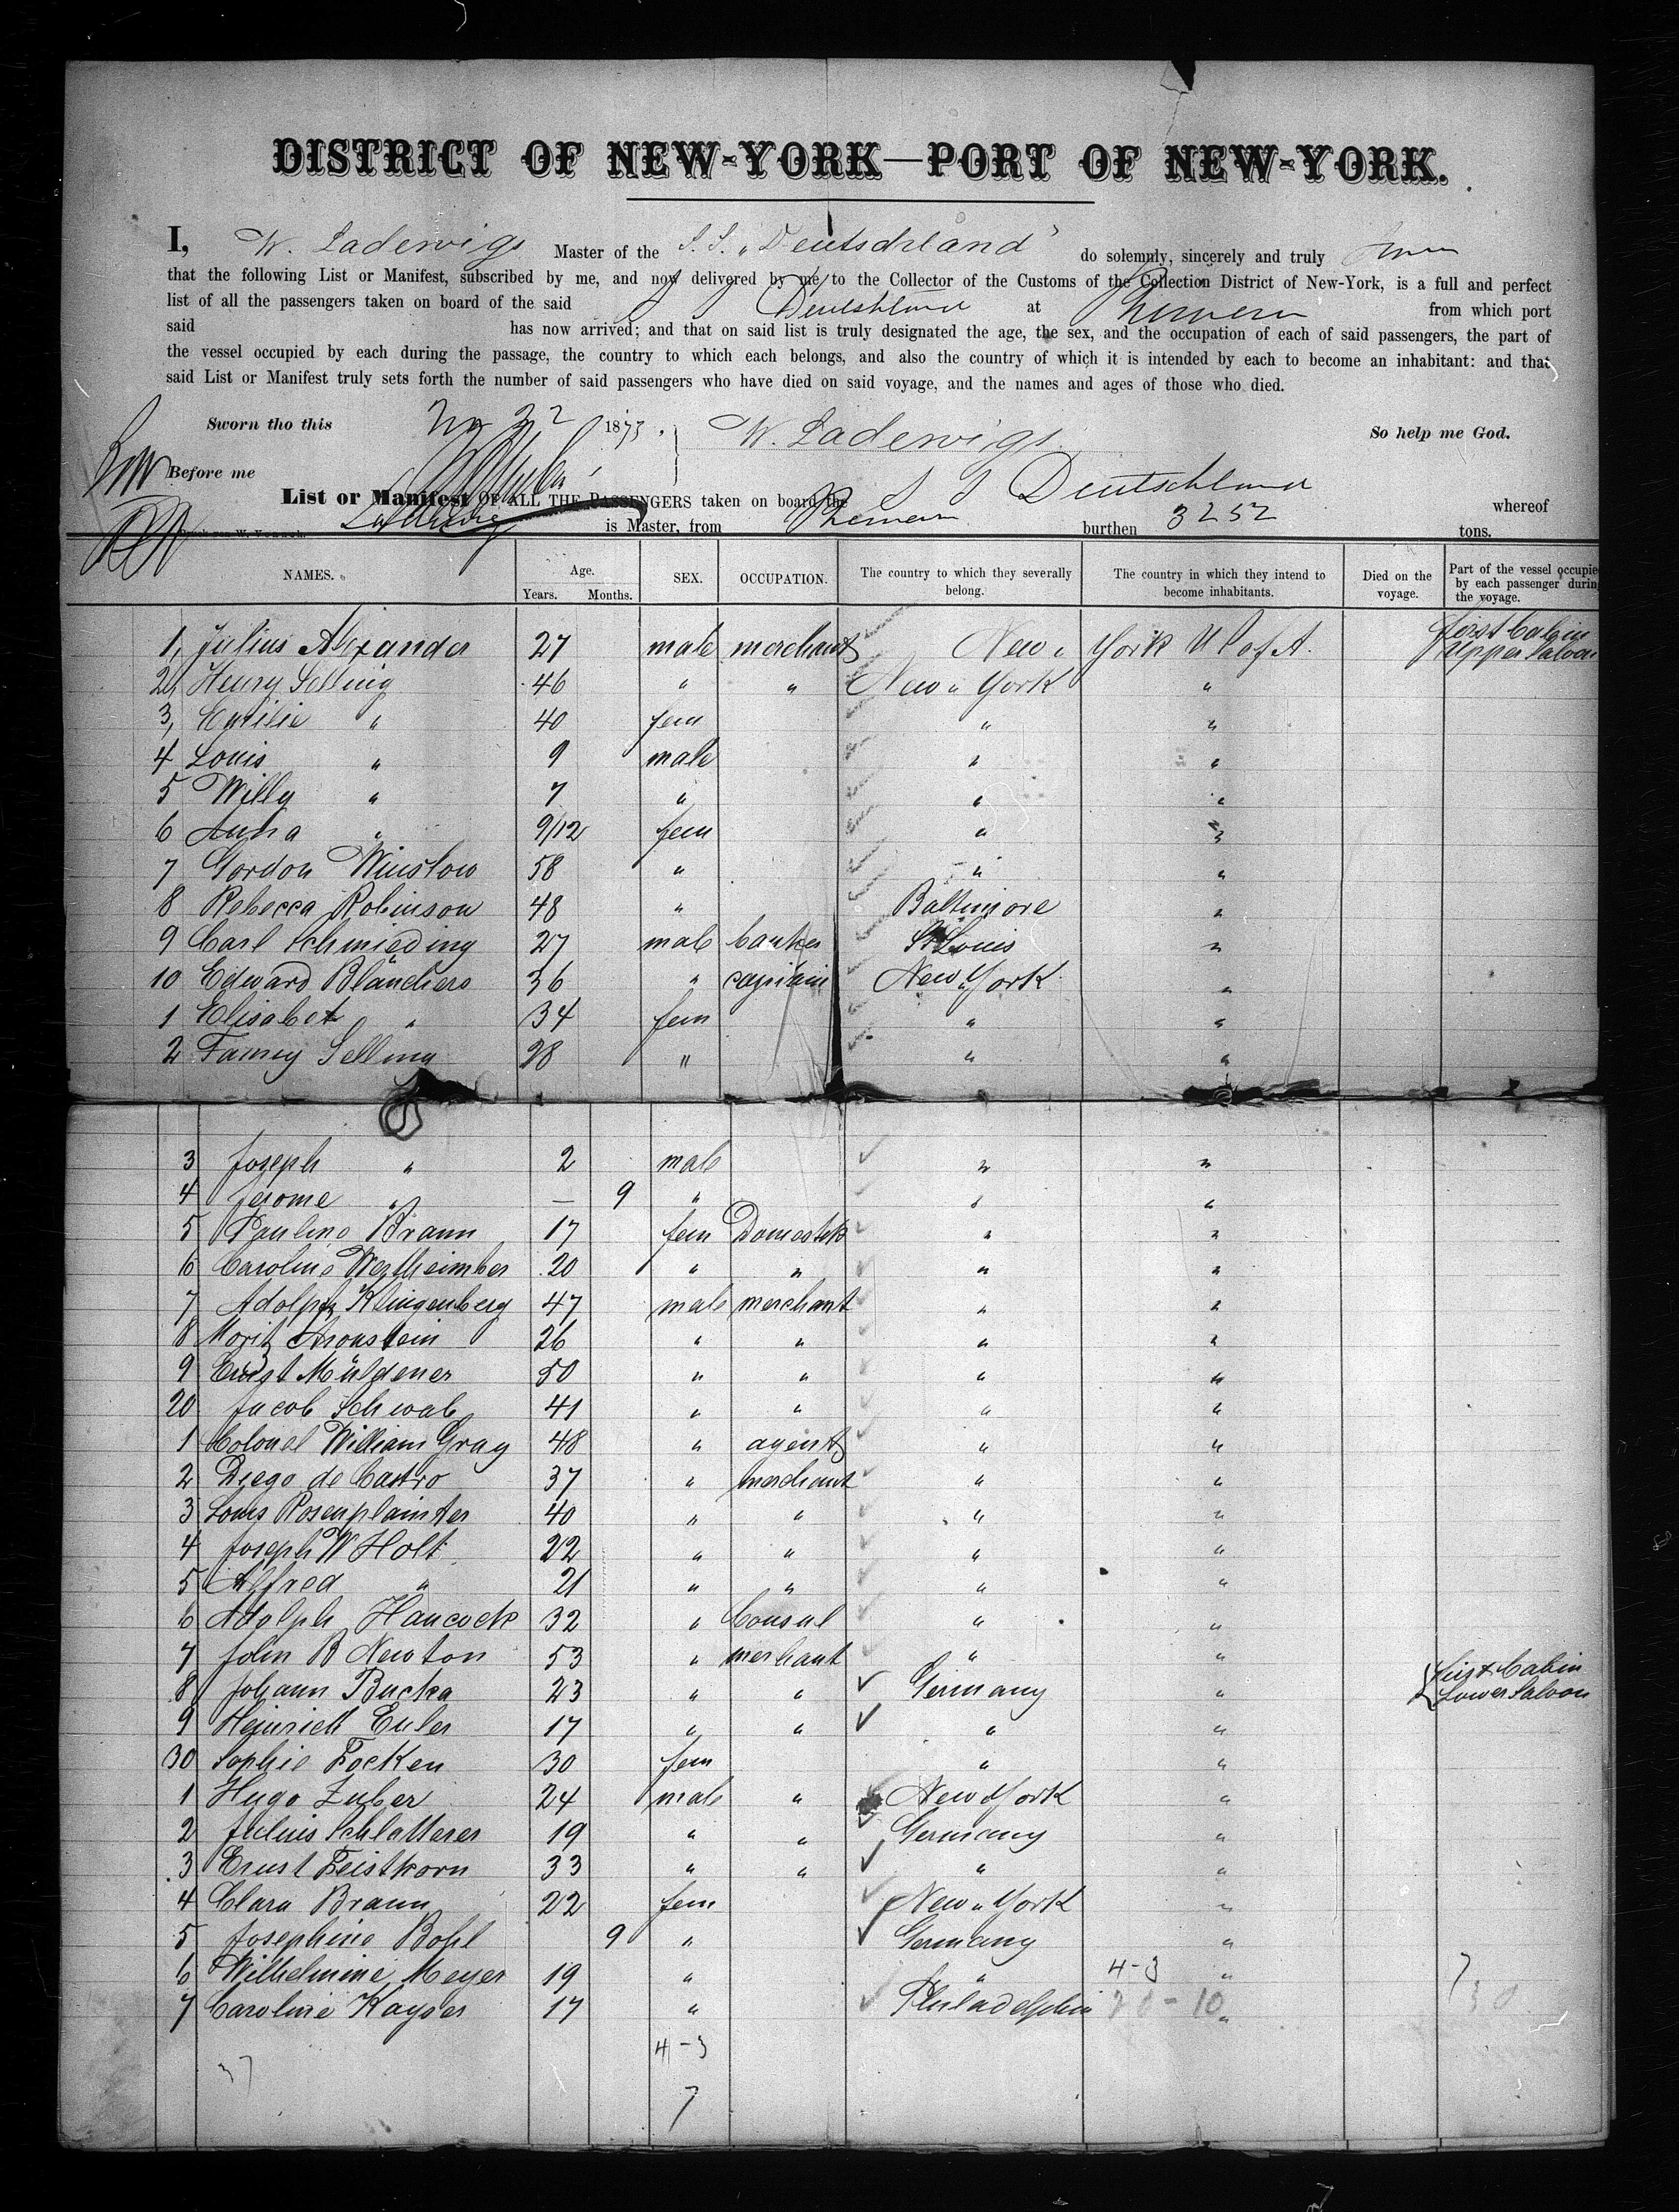 DISTRICT OF NEW-YORK—PORT OF NEW-YORK.
I, W. Ladewigs Master of the S. S. „Deutschland" do solemnly, sincerely and truly
that the following List or Manifest, subscribed by me, and now delivered by me to the Collector of the Customs of the Collection District of New-York, is a full and perfect
list of all the passengers taken on board of the said S S Deutschland at Bremen from which port
said has now arrived; and that on said list is truly designated the age, the sex, and the occupation of each of said passengers, the part of
the vessel occupied by each during the passage, the country to which each belongs, and also the country of which it is intended by each to become an inhabitant: and that
said List or Manifest truly sets forth the number of said passengers who have died on said voyage, and the names and ages of those who died.
Sworn tho this 22 1873. W. Ladewigs So help me God.
Before me
List or Manifest OF ALL THE PASSENGERS taken on board the S S Deutschland whereof
Ladewigs is Master, from Bremen burthen 3252 tons.
NAMES. Age. Years. Months. SEX. OCCUPATION. The country to which they severally belong. The country in which they intend to become inhabitants. Died on the voyage. Part of the vessel occupied by each passenger during the voyage.
1, Julius Alexander 27 male merchant New " York U S of A. First Cabin Upper Saloon
2, Henry Selling 46 " " New " York "
3, Emilie " 40 fem " "
4 Louis " 9 male " "
5 Willy " 7 " " "
6 Anna " 9/12 fem " "
7 Gordon Winslow 58 " " "
8 Rebecca Robinson 48 " Baltimore "
9 Carl Schmieding 27 male banker St Louis "
10 Edward Blanchers 36 " captain New York "
1 Elisabet " 34 fem " "
2 Fanny Selling 28 " " "
3 Joseph " 2 male " "
4 Jerome " — 9 " " "
5 Pauline Braun 17 fem Domestik " "
6 Caroline Wertheimber 20 " " " "
7 Adolph Klingenberg 47 male merchant " "
8 Moritz Aronstein 26 " " " "
9 Ernst Müldener 50 " " " "
20 Jacob Schwab 41 " " " "
1 Colonel William Gray 48 " agent " "
2 Diego de Castro 37 " merchant " "
3 Louis Rosenplainter 40 " " " "
4 Joseph W Holt 22 " " " "
5 Alfred " 21 " " " "
6 Adolph Hancock 32 " Consul " "
7 John B Newton 53 " merchant " "
8 Johann Bucka 23 " " Germany " First Cabin Lower Saloon
9 Heinrich Euler 17 " " " "
30 Sophie Focken 30 fem " "
1 Hugo Zuber 24 male " New York "
2 Julius Schlatterer 19 " " Germany "
3 Ernst Feistkorn 33 " " " "
4 Clara Braun 22 fem New " York "
5 Josephine Bohl 9 " Germany "
6 Wilhelmine Meyer 19 " " 4-3 " 7
7 Caroline Kayser 17 " Philadelphia 20-10 " 30
4-3
37
7